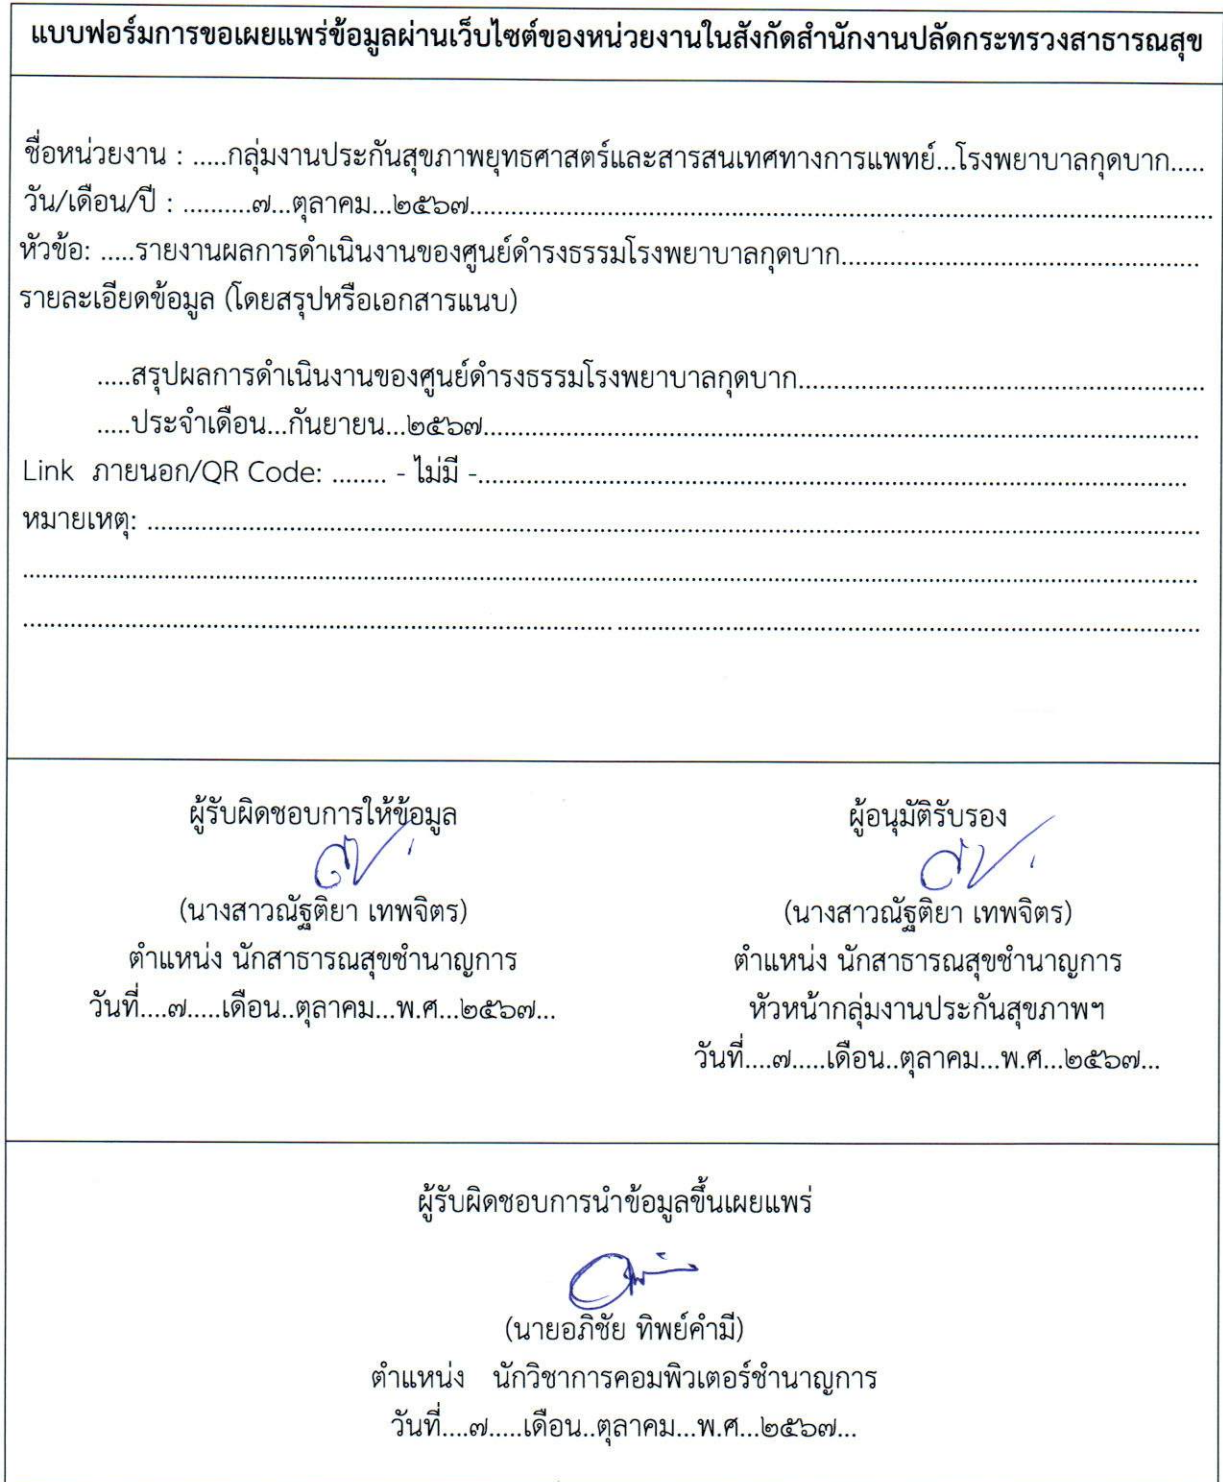 แบบฟอร์มการขอเผยแพร่ข้อมูลผ่านเว็บไซต์ของหน่วยงานในสังกัดสำนักงานปลัดกระทรวงสาธารณสุข
ชื่อหน่วยงาน : .....กลุ่มงานประกันสุขภาพยุทธศาสตร์และสารสนเทศทางการแพทย์...โรงพยาบาลกุดบาก.....
วัน/เดือน/ปี : ..........๗...ตุลาคม...๒๕๖๗..........
หัวข้อ: .....รายงานผลการดำเนินงานของศูนย์ดำรงธรรมโรงพยาบาลกุดบาก..........
รายละเอียดข้อมูล (โดยสรุปหรือเอกสารแนบ)
.....สรุปผลการดำเนินงานของศูนย์ดำรงธรรมโรงพยาบาลกุดบาก..........
.....ประจำเดือน...กันยายน...๒๕๖๗..........
Link ภายนอก/QR Code: ........ - ไม่มี -..........
หมายเหตุ: ..........
ผู้รับผิดชอบการให้ข้อมูล
(นางสาวณัฐติยา เทพจิตร)
ตำแหน่ง นักสาธารณสุขชำนาญการ
วันที่....๗.....เดือน..ตุลาคม...พ.ศ...๒๕๖๗...
ผู้อนุมัติรับรอง
(นางสาวณัฐติยา เทพจิตร)
ตำแหน่ง นักสาธารณสุขชำนาญการ
หัวหน้ากลุ่มงานประกันสุขภาพฯ
วันที่....๗.....เดือน..ตุลาคม...พ.ศ...๒๕๖๗...
ผู้รับผิดชอบการนำข้อมูลขึ้นเผยแพร่
(นายอภิชัย ทิพย์คำมี)
ตำแหน่ง นักวิชาการคอมพิวเตอร์ชำนาญการ
วันที่....๗.....เดือน..ตุลาคม...พ.ศ...๒๕๖๗...